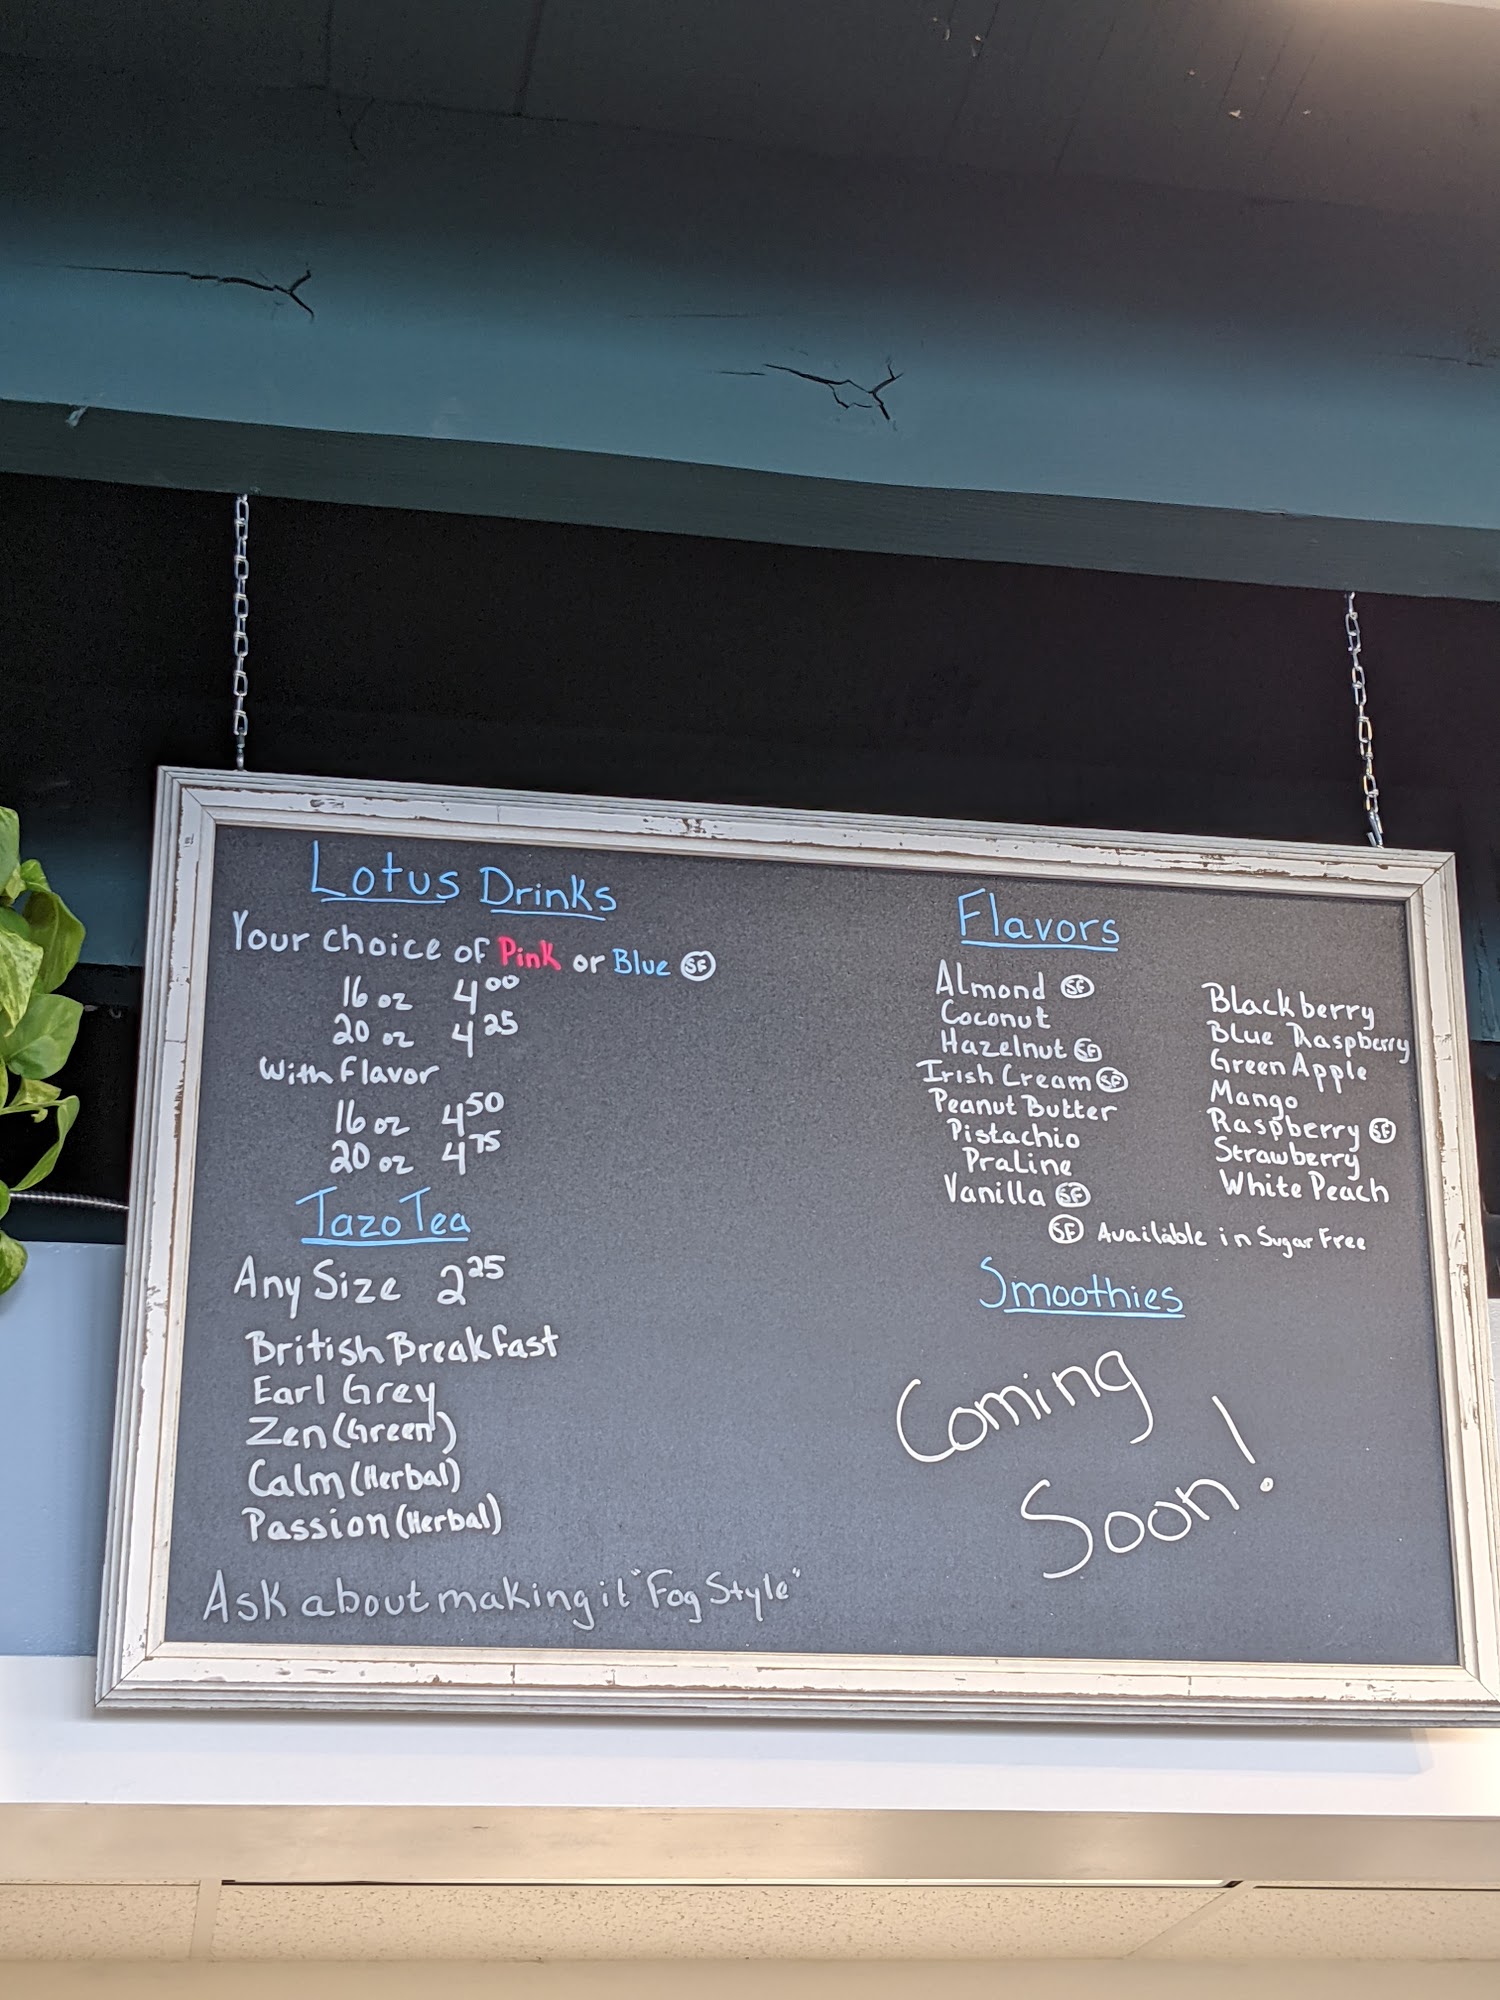 Lotus Drinks
Your choice of Pink or Blue SF
16 oz 4.00
20 oz 4.25
With Flavor
16 oz 4.50
20 oz 4.75
Tazo Tea
Any Size 2.25
British Breakfast
Earl Grey
Zen (Green)
Calm (Herbal)
Passion (Herbal)
Ask about making it "Fog Style"
Flavors
Almond SF
Coconut
Hazelnut SF
Irish Cream SF
Peanut Butter
Pistachio
Praline
Vanilla SF
Blackberry
Blue Raspberry
Green Apple
Mango
Raspberry SF
Strawberry
White Peach
SF Available in Sugar Free
Smoothies
Coming
Soon!